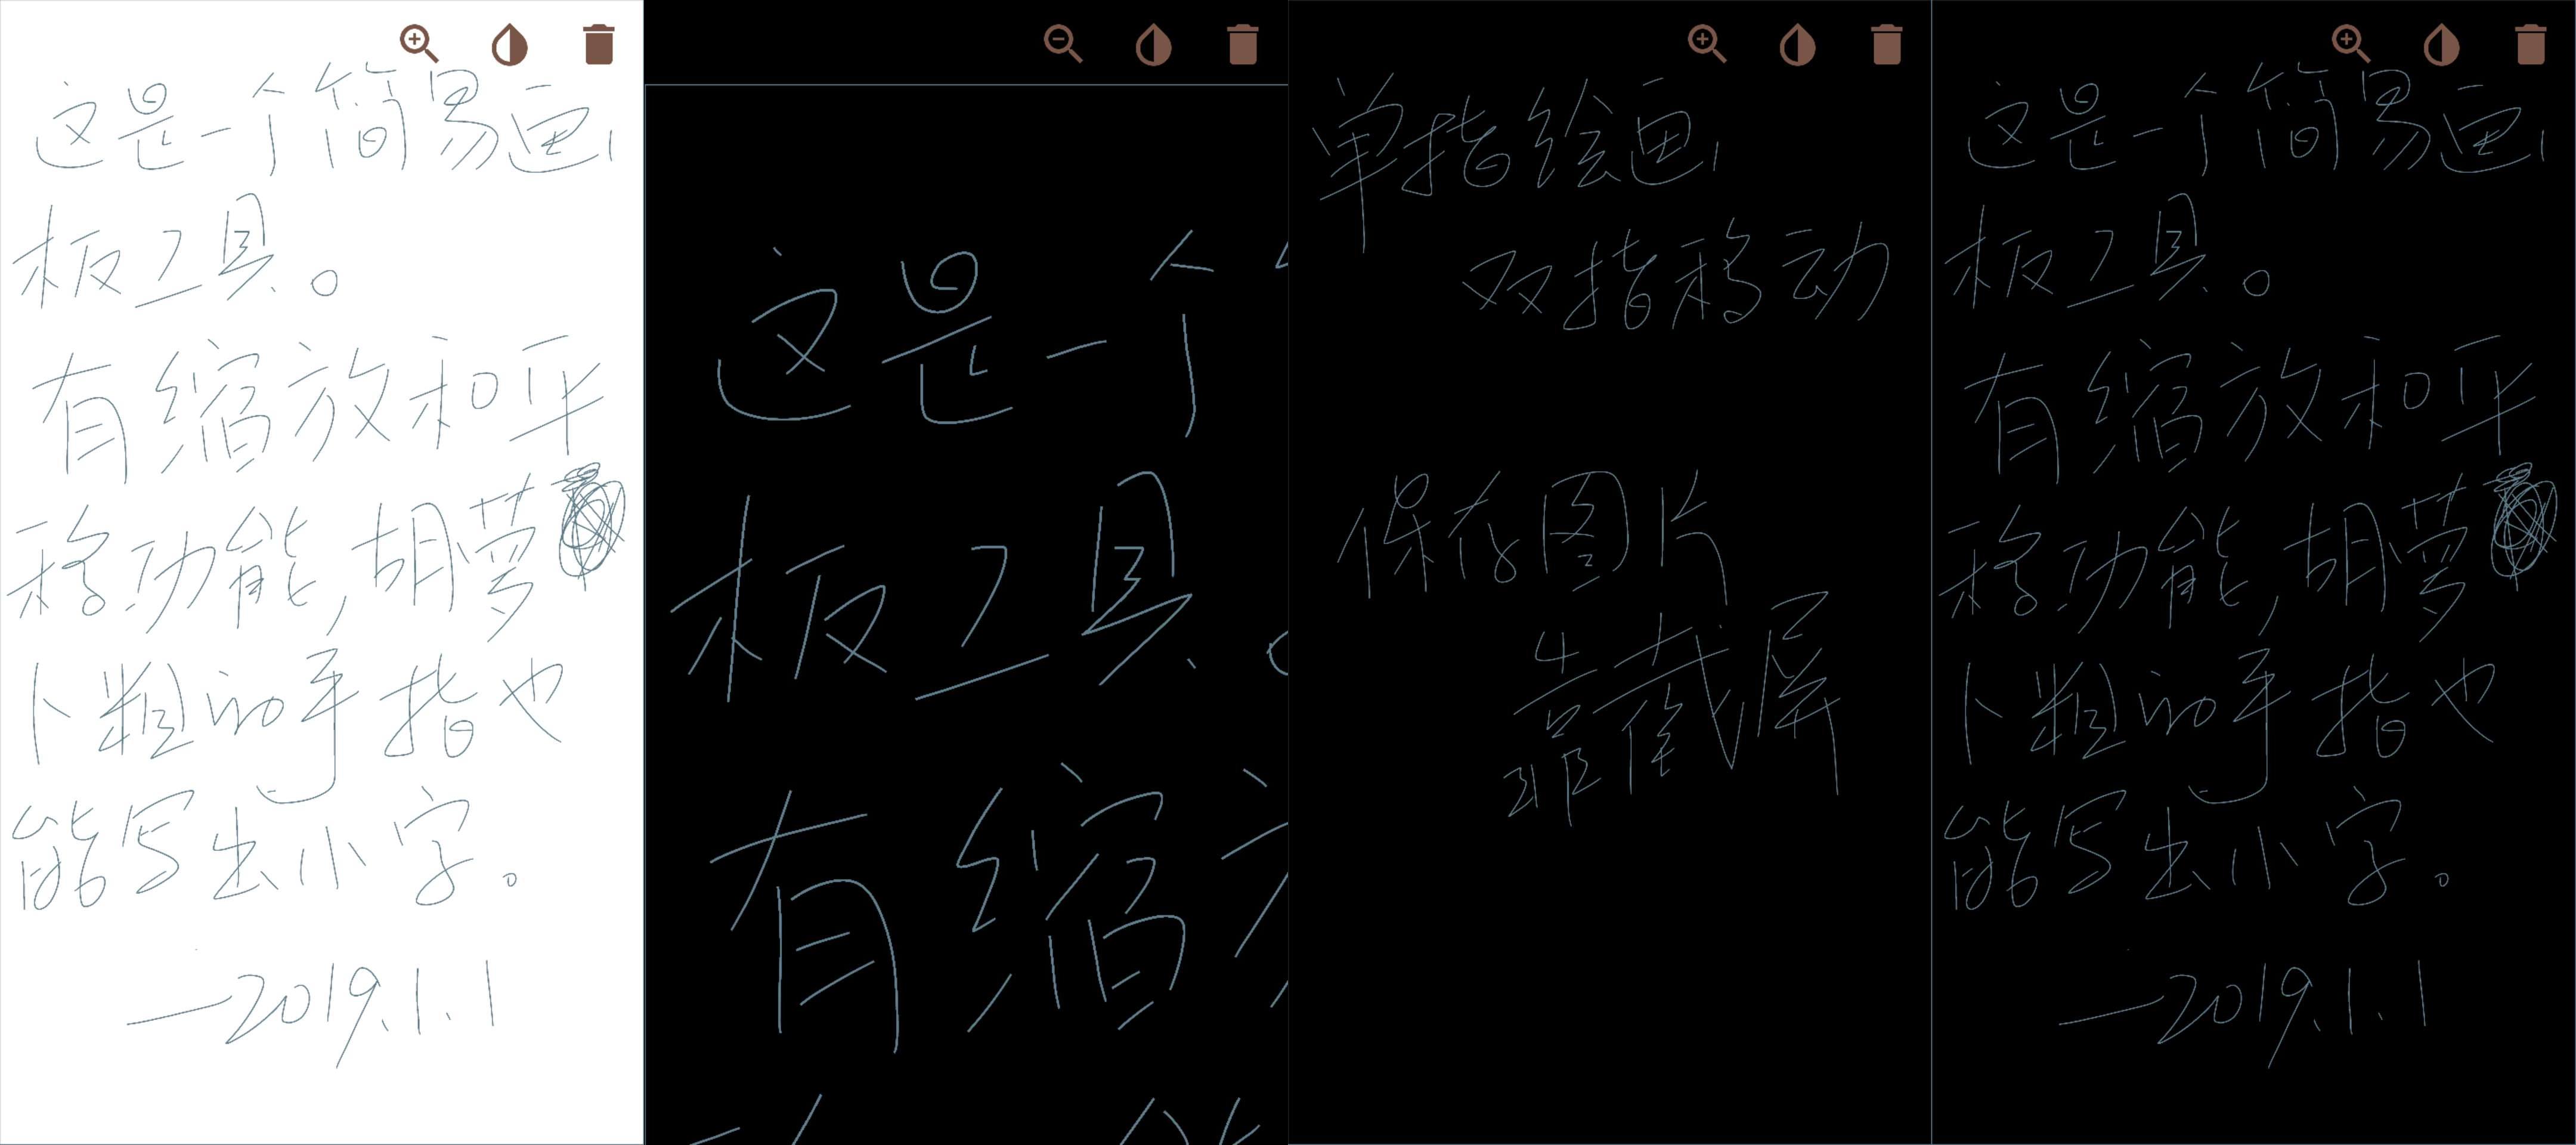 这是一个简易画
板工具。
有缩放和平
移功能,胡萝
卜粗的手指也
能写出小字。
—2019.1.1
这是一个
板工具。
有缩
单指绘画
双指移动
保存图片
靠截屏
这是一个简易画
板工具。
有缩放和平
移功能,胡萝
卜粗的手指也
能写出小字。
—2019.1.1